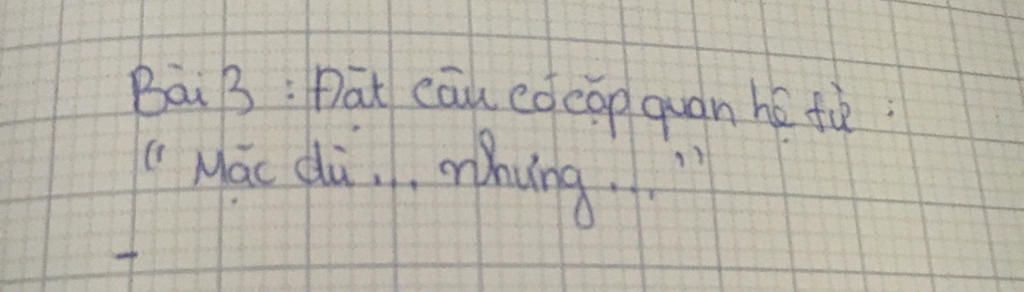 Bài 3 : Đặt câu có cặp quan hệ từ :
“ Mặc dù ... nhưng .... ”
-